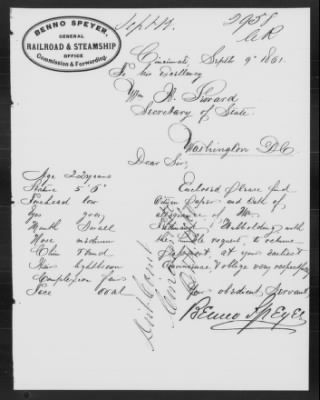 BENNO SPEYER,
GENERAL
RAILROAD & STEAMSHIP
OFFICE
Commission & Forwarding.
Sept 12.
2958
Cincinnati, Septb 9th 1861.
To his Excellency
Wm H. Seward
Secretary of State.
Washington D.C.
Dear Sir,
Age 22 years
Stature 5' 6"
Forehead low
Eyes gray,
Mouth Small
Nose medium
Chin round
Hair light brown
Complexion fair
Face oval
Enclosed please find
Citizen Paper and Oath of
allegiance of Mr.
with
the humble request, to return
Passport, at your earliest
Convenience & oblige very respectfully
Your obedient Servant,
BENNO SPEYER
Cincinnati